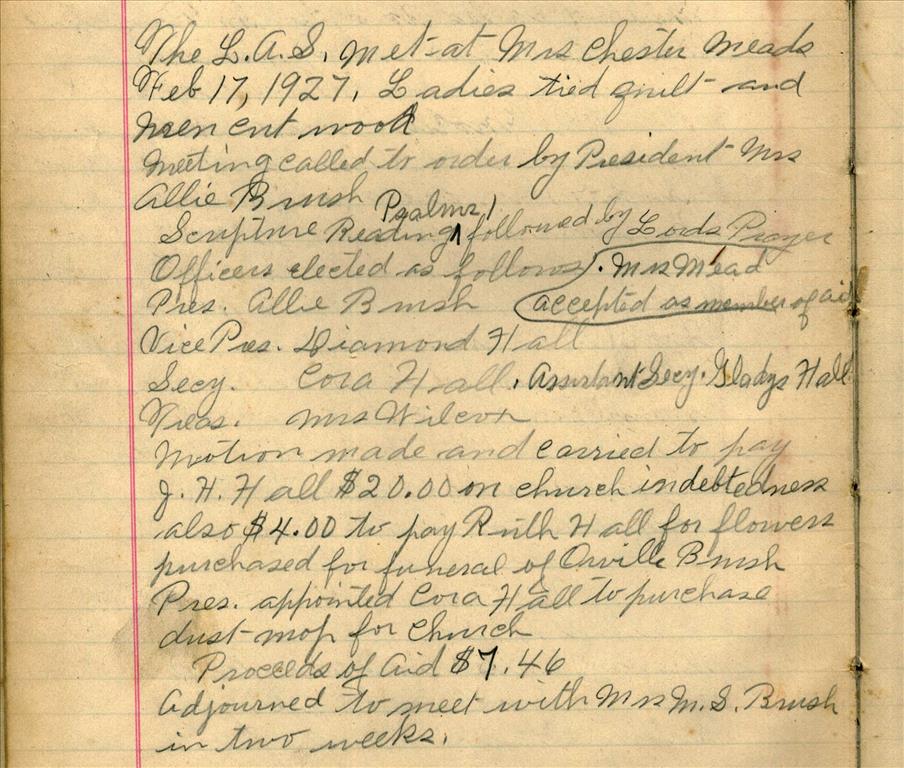 The L.A.S. met at Mrs Chester Meads
Feb 17, 1927. Ladies tied quilt and
men cut wood
Meeting called to order by President Mrs
Allie Brush
Scripture Reading Psalms 1 followed by Lords Prayer
Officers elected as follows. Mrs Mead
Pres. Allie Brush accepted as member of aid
Vice Pres. Diamond Hall
Secy. Cora Hall. Assistant Secy. Gladys Hall
Treas. Mrs Wilcox
Motion made and carried to pay
J. H. Hall $20.00 on church indebtedness
also $4.00 to pay Ruth Hall for flowers
purchased for funeral of Orville Brush
Pres. appointed Cora Hall to purchase
dust-mop for church
Proceeds of Aid $7.46
Adjourned to meet with Mrs M.S. Brush
in two weeks.